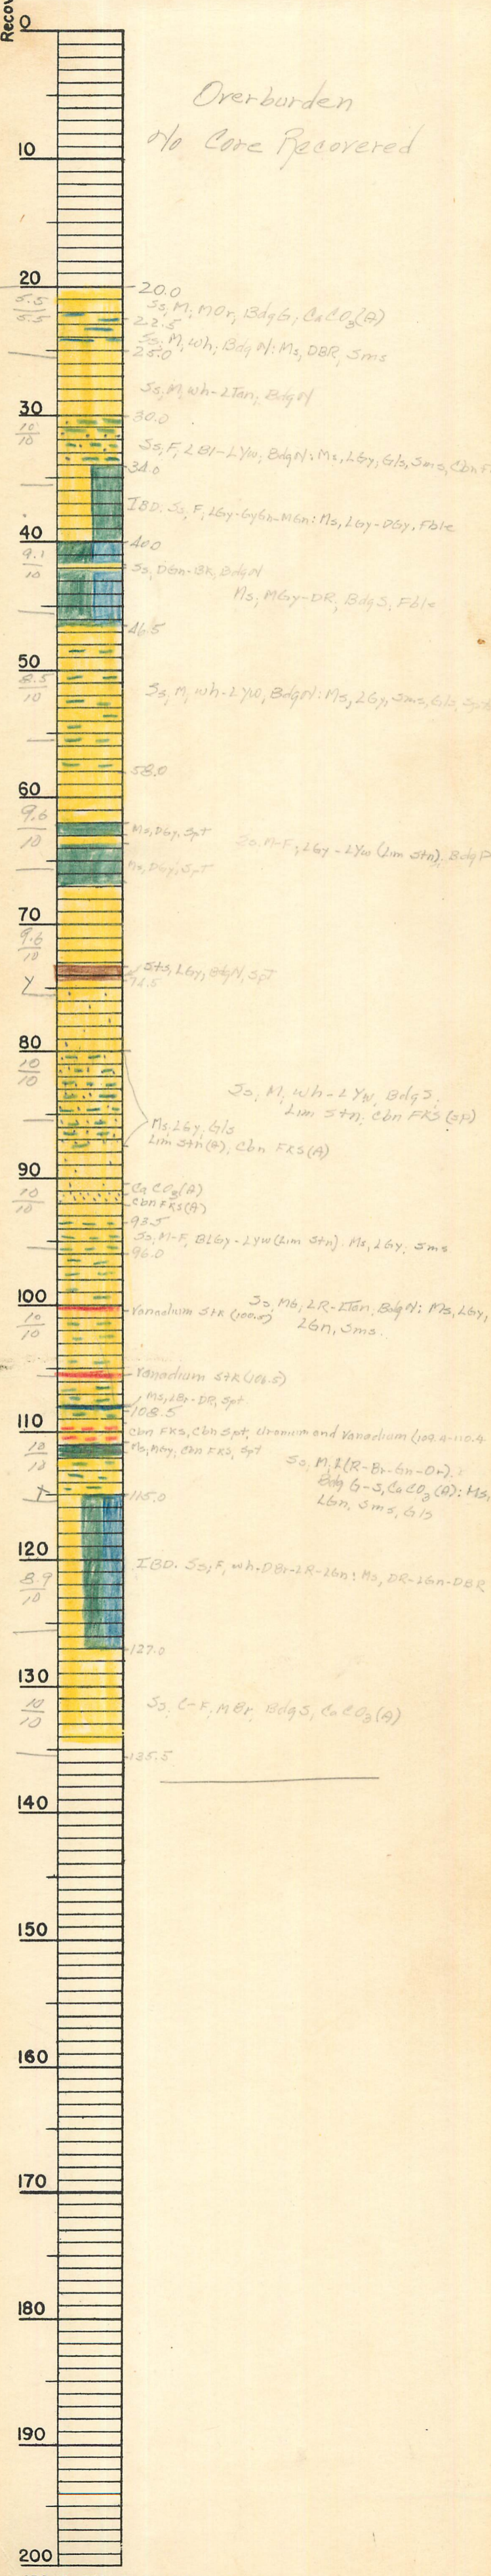 Recov
0
Overburden
No Core Recovered
10
20
20.0
5.5
5.5
Ss, M, MOr, BdgG, CaCO3(A)
22.5
Ss, M, wh, Bdg N: Ms, DBR, Sms
25.0
Ss, M, wh-LTan, Bdg N
30
30.0
10
10
Ss, F, LBl-LYw, Bdg N: Ms, LGy, G/s, Sms, Cbn F
34.0
IBD. Ss, F, LGy-GyGn-MGn: Ms, LGy-DGy, Fble
40
40.0
9.1
10
Ss, DGn-BK, Bdg N
Ms, MGy-DR, Bdg S, Fble
46.5
50
8.5
10
Ss, M, wh-LYw, Bdg N: Ms, LGy, Sms, G/s, Spt
58.0
60
9.6
10
Ms, DGy, Spt
Ss, M-F, LGy-LYw (Lim Stn), Bdg P
Ms, DGy, Spt
70
9.6
10
Sts, LGy, Bdg N, Spt
74.5
80
10
10
Ss, M, wh-LYw, Bdg S,
Lim Stn, Cbn FKS (SP)
Ms, LGy, G/s
Lim Stn(A), Cbn FKS(A)
90
10
10
CaCO3(A)
Cbn FKS(A)
93.5
Ss, M-F, BLGy-LYw (Lim Stn). Ms, LGy, Sms
96.0
100
10
10
Vanadium Stk (100.5)
Ss, MG, LR-LTan, Bdg N: Ms, LGy,
LGn, Sms.
Vanadium Stk (106.5)
Ms, LBr-DR, Spt
108.5
110
10
10
Cbn FKS, Cbn Spt, Uranium and Vanadium (109.4-110.4
Ms, MGy, Cbn FKS, Spt
Ss, M, L(R-Br-Gn-Or),
Bdg G-S, CaCO3(A): Ms,
LGn, Sms, G/s
115.0
120
8.9
10
IBD. Ss, F, wh-DBr-LR-LGn: Ms, DR-LGn-DBR
127.0
130
10
10
Ss, C-F, MBr, Bdg S, CaCO3(A)
135.5
140
150
160
170
180
190
200